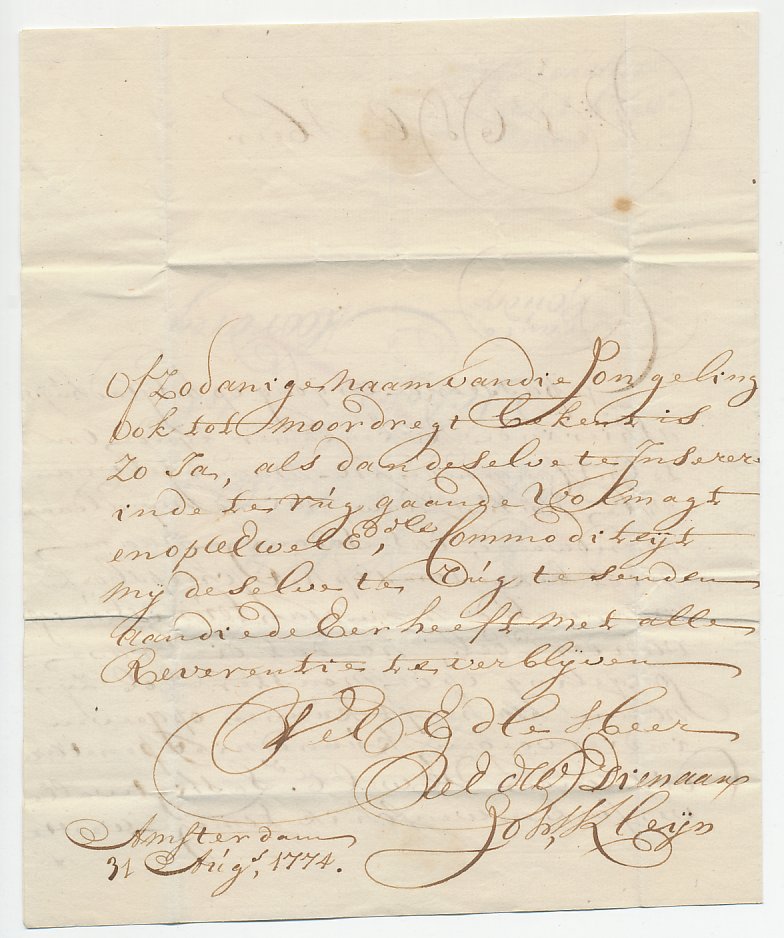 Of Zodanige naam van die Jongeling
ook tot moordregt bekent is
Zo Ja, als dan deselve te Inserer
in de te rúg gaande Volmagt
en op UEd wel Ed,dle Commoditeyt
mij deselve te Rúg te senden
aan die de Eer heeft met alle
Reverentie te verblyven
Wel Edle Heer
UEd dW Dienaar
Joh, Kleijn
Amsterdam
31 Aúgs, 1774.